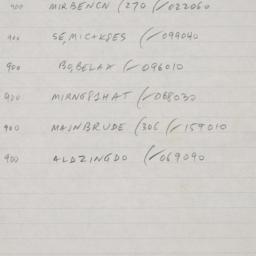 900 MIRBENCN (270 (✓022060
900 SE,MICXKSES (✓099040
900 BO,BELAX (✓096010
900 MIRNGS1HAT (✓068030
900 MAINBRUDE (306 (✓159010
900 ALDZINGDO (✓069090